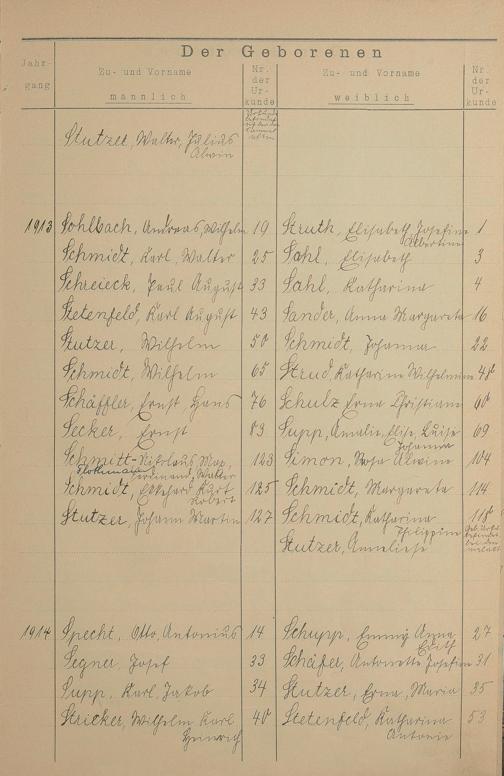 Der Geborenen
Jahr-
gang
Zu- und Vorname
männlich
Nr.
der
Ur-
kunde
Zu- und Vorname
weiblich
Nr.
der
Ur-
kunde
Stutzer, Walter, Julius
Alwin
1913 Sohlbach, Andreas, Wilhelm 19 Struth, Elisabeth Josefine 1
Albertine
Schmidt, Karl, Walter 25 Sahl, Elisabeth 3
Schreieck, Paul August 33 Sahl, Katharina 4
Stetenfeld, Karl August 43 Sander, Anna Margareta 16
Stutzer, Wilhelm 50 Schmidt, Johanna 22
Schmidt, Wilhelm 65 Strud, Katharina Wilhelmine 48
Schäffler, Ernst, Hans 76 Schulz Erna Christiane 60
Secker, Ernst 83 Supp, Amalie, Elise, Luise 69
Johanna
Schmitt-Nikolaus, Max, 123 Simon, Rosa Alwine 104
Ferdinand, Walter
Schmidt, Ekkehard Kurt 125 Schmidt, Margareta 114
Robert
Stutzer, Johann Martin 127 Schmidt, Katharina 118
Philippine
Stutzer, Anneliese
1914 Specht, Otto, Antonius 14 Schupp, Emmy Anna 27
Edith
Segner, Josef 33 Schäfer, Antonette Josefine 31
Supp, Karl, Jakob 34 Stutzer, Erna, Maria 35
Stricker, Wilhelm Karl 40 Stetenfeld, Katharina 53
Heinrich Antonie